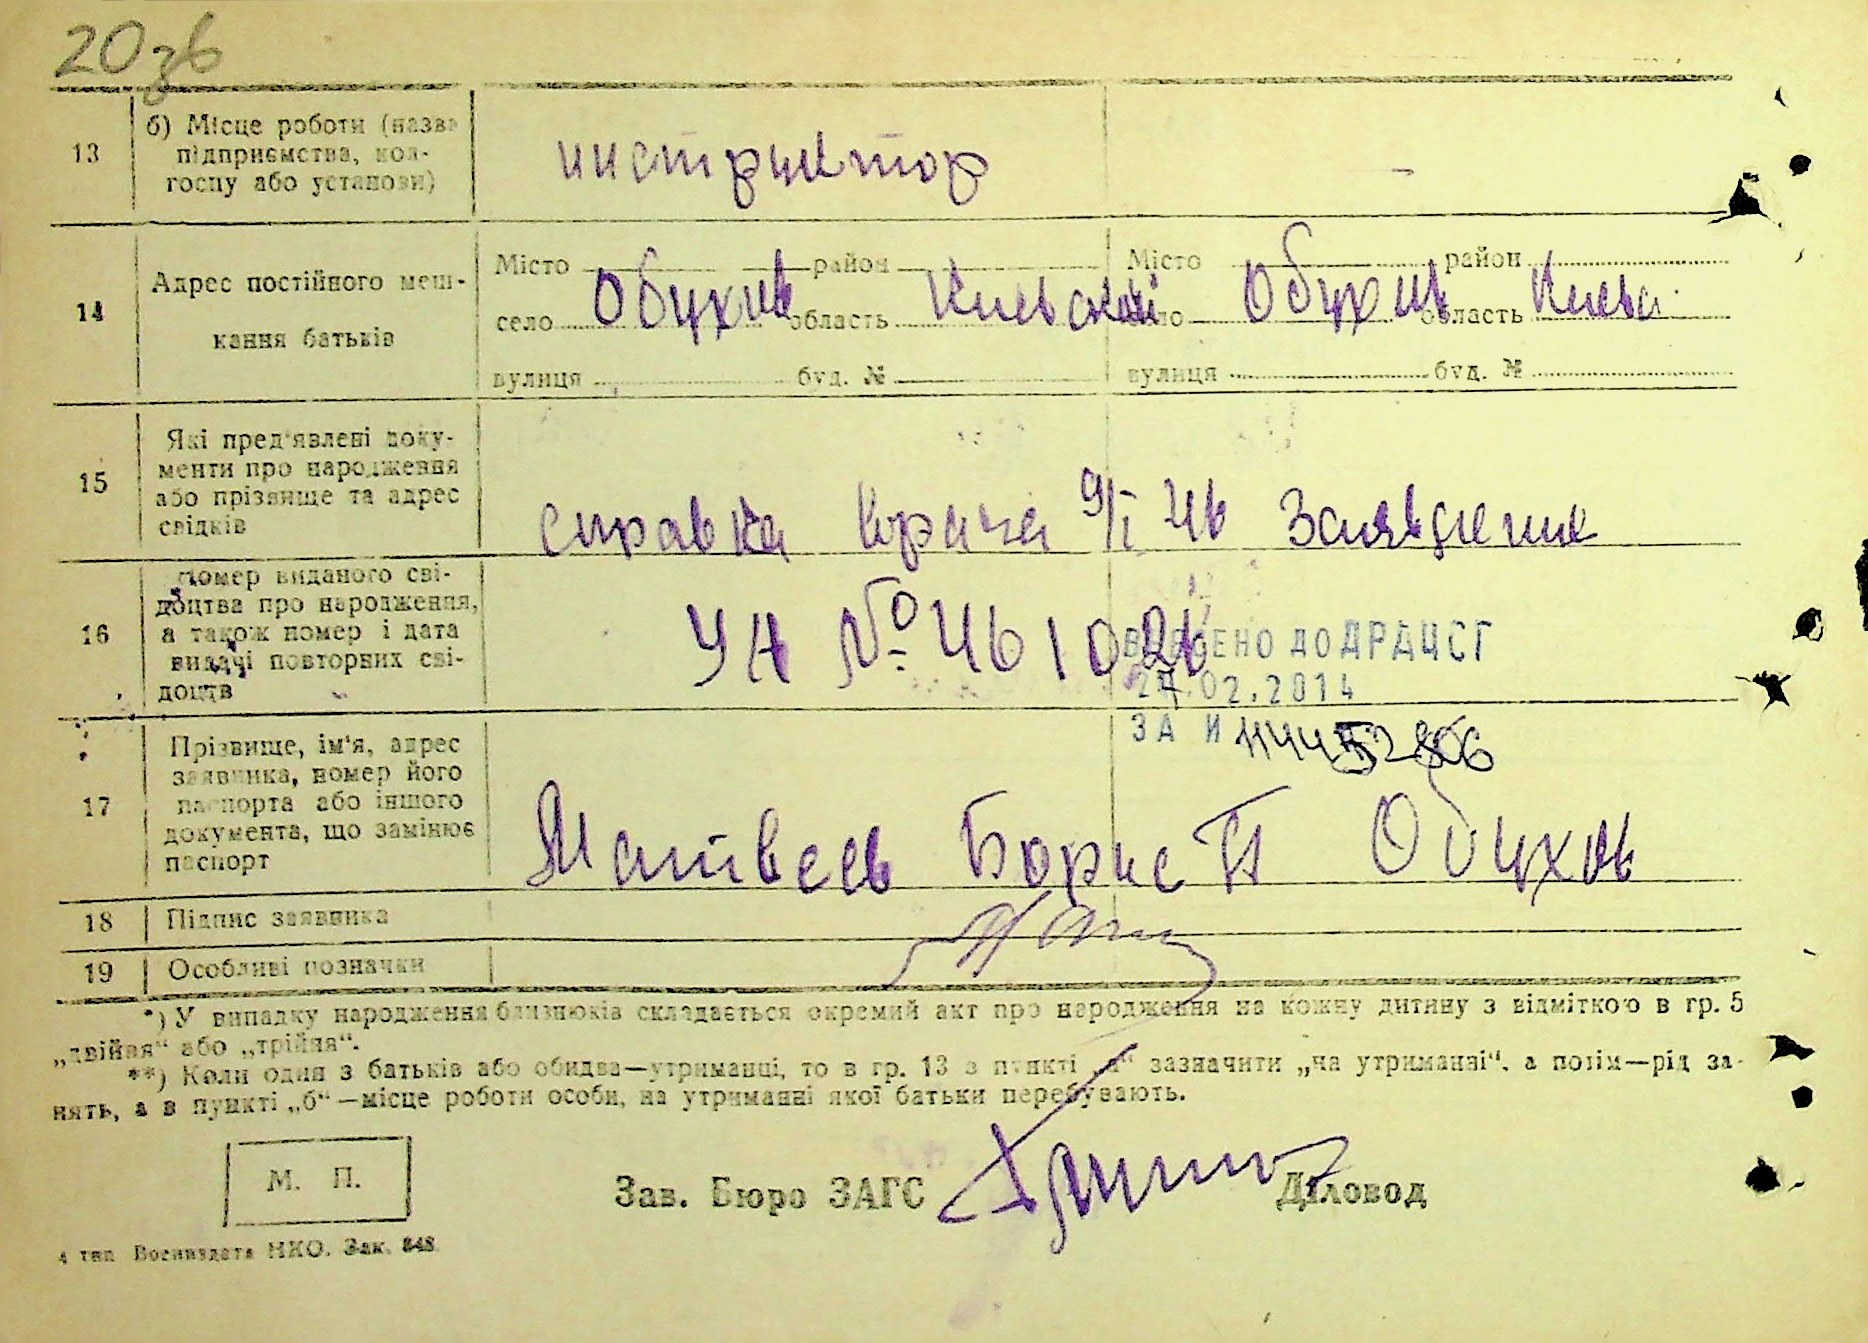 20зв
13
б) Місце роботи (назва підприємства, кол-
госпу або установи)
инструктор
-
14
Адрес постійного меш-
кання батьків
Місто район
село Обухов область Киевской
вулиця буд. №
Місто район
село Обухов область Киевс
вулиця буд. №
15
Які пред'явлені доку-
менти про народження
або прізвище та адрес
свідків
справка врача 9/I 46 Заявление
16
Номер виданого сві-
доцтва про народження,
а також номер і дата
видачі повторних сві-
доцтв
УА № 461026
ВНЕСЕНО ДО ДРАЦСГ
02.2014
ЗА №
17
Прізвище, ім'я, адрес
заявника, номер його
паспорта або іншого
документа, що замінює
паспорт
Матвеев Борис П Обухов
18
Підпис заявника
19
Особливі позначки
*) У випадку народження близнюків складається окремий акт про народження на кожну дитину з відміткою в гр. 5
„двійня“ або „трійня“.
**) Коли один з батьків або обидва—утриманці, то в гр. 13 в пункті „а“ зазначити „на утриманні“, а потім—рід за-
нять, а в пункті „б“—місце роботи особи, на утриманні якої батьки перебувають.
М. П.
Зав. Бюро ЗАГС
Діловод
4 тип Воениздата НКО. Зак. 848